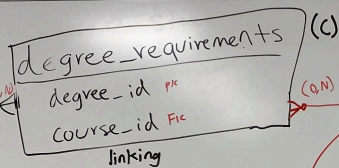 degree_requirements (C)
degree_id PK
course_id FK
(0,N)
linking